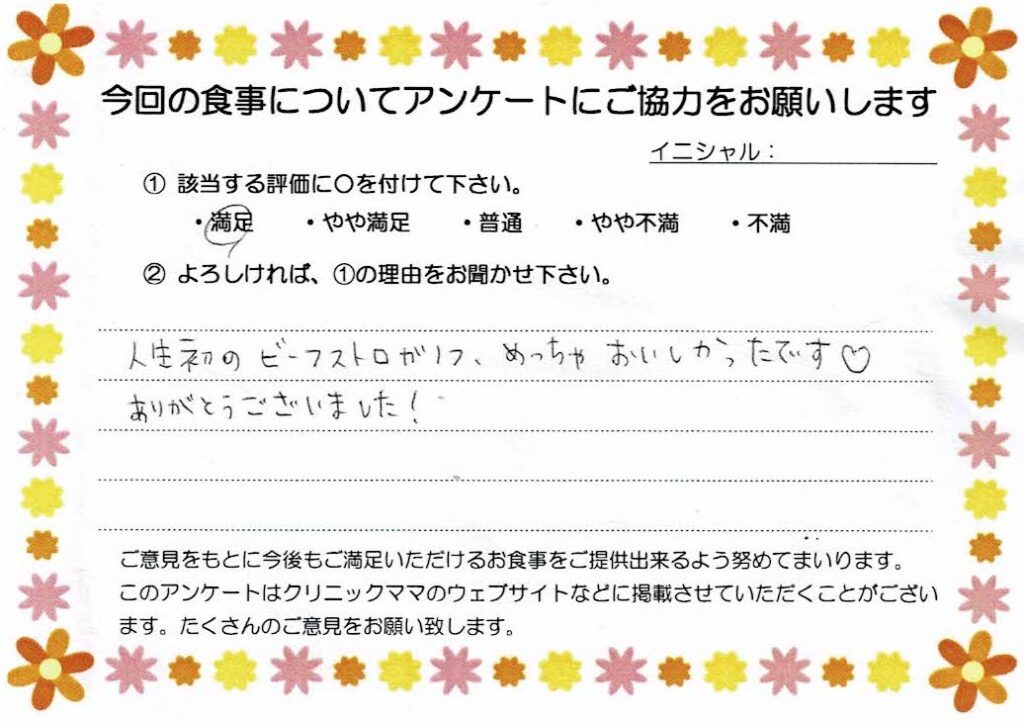 今回の食事についてアンケートにご協力をお願いします
イニシャル：
① 該当する評価に〇を付けて下さい。
・満足 ・やや満足 ・普通 ・やや不満 ・不満
② よろしければ、①の理由をお聞かせ下さい。
人生初のビーフストロガノフ、めっちゃおいしかったです♡
ありがとうございました！
ご意見をもとに今後もご満足いただけるお食事をご提供出来るよう努めてまいります。
このアンケートはクリニックママのウェブサイトなどに掲載させていただくことがござい
ます。たくさんのご意見をお願い致します。